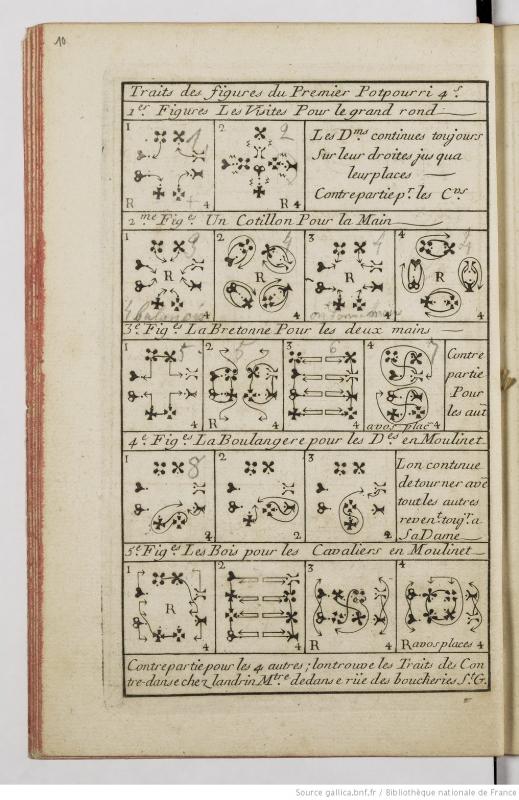 10
Traits des figures du Premier Potpourri 4.s
1.es Figures Les Visites Pour le grand rond
1 2
1 2
Les D.ms continues toujours
Sur leur droites jus qua
leur places
Contre partie p.r les C.vs
R 4 4 R 4
2.me Fig.es Un Cotillon Pour la Main
1 2 3 4
3 4 4 4
R R R R
4 4 4 4
3.e Fig.es La Bretonne Pour les deux mains
1 2 3 4
5 5 6 7
Contre
partie
Pour
les aut
4 R 4 4 4
avos plac
4.e Fig.es La Boulangere pour les D.es en Moulinet
1 2 3
8
Lon continue
de tourner avc
tout les autres
reven.t touj.r a
Sa Dame
2 2 2
5.e Fig.es Les Bois pour les Cavaliers en Moulinet
1 2 3 4
R
4 4 R 4 R avos places 4
Contre partie pour les 4 autres; lon trouve les Traits des Con
tre-danse chez landrin M.tre dedans e rüe des boucheries S.t G.
Source gallica.bnf.fr / Bibliothèque nationale de France